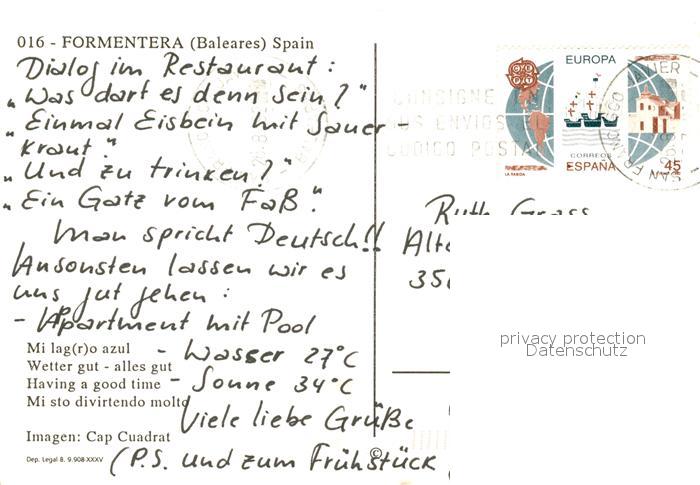 016 - FORMENTERA (Baleares) Spain
Dialog im Restaurant :
„Was darf es denn sein?"
„Einmal Eisbein mit Sauer
kraut"
„Und zu trinken?"
„Ein Gatz vom Faß".
Man spricht Deutsch!!
Ansonsten lassen wir es
uns gut gehen :
- Apartment mit Pool
- Wasser 27°C
- Sonne 34°C
Viele liebe Grüße
(P.S. und zum Frühstück
Mi lag(r)o azul
Wetter gut - alles gut
Having a good time
Mi sto divirtendo molto
Imagen: Cap Cuadrat
Dep. Legal B. 9.908-XXXV
CONSIGNE
SUS ENVIOS
CODIGO POSTAL
EUROPA
CORREOS
ESPAÑA
45
LA RABIDA
SAN FRANCISCO JAVIER
Ruth Grass
Alte
35
privacy protection
Datenschutz